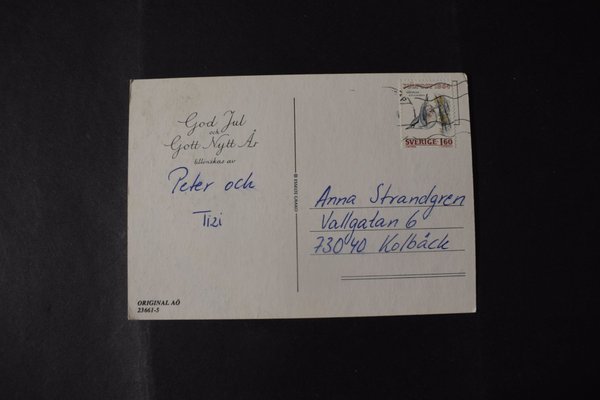 God Jul
och
Gott Nytt År
tillönskas av
Peter och
Tizi
ORIGINAL AÖ
23661-5
SVERIGE 160
Anna Strandgren
Vallgatan 6
73040 Kolbäck